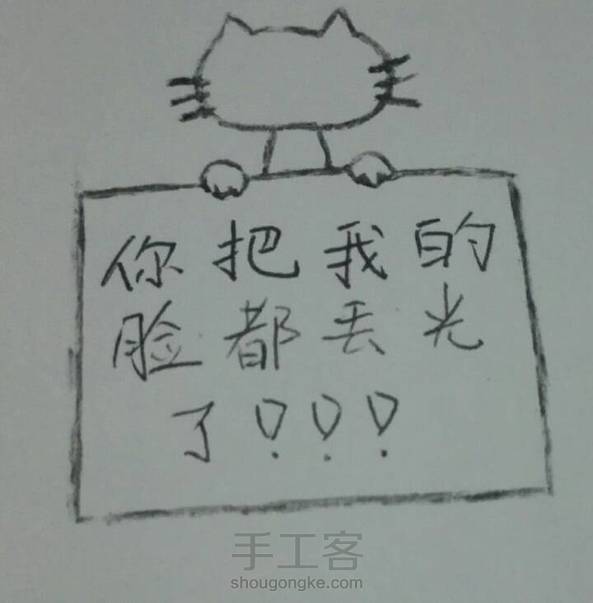 你把我的
脸都丢光
了!!!
手工客
shougongke.com